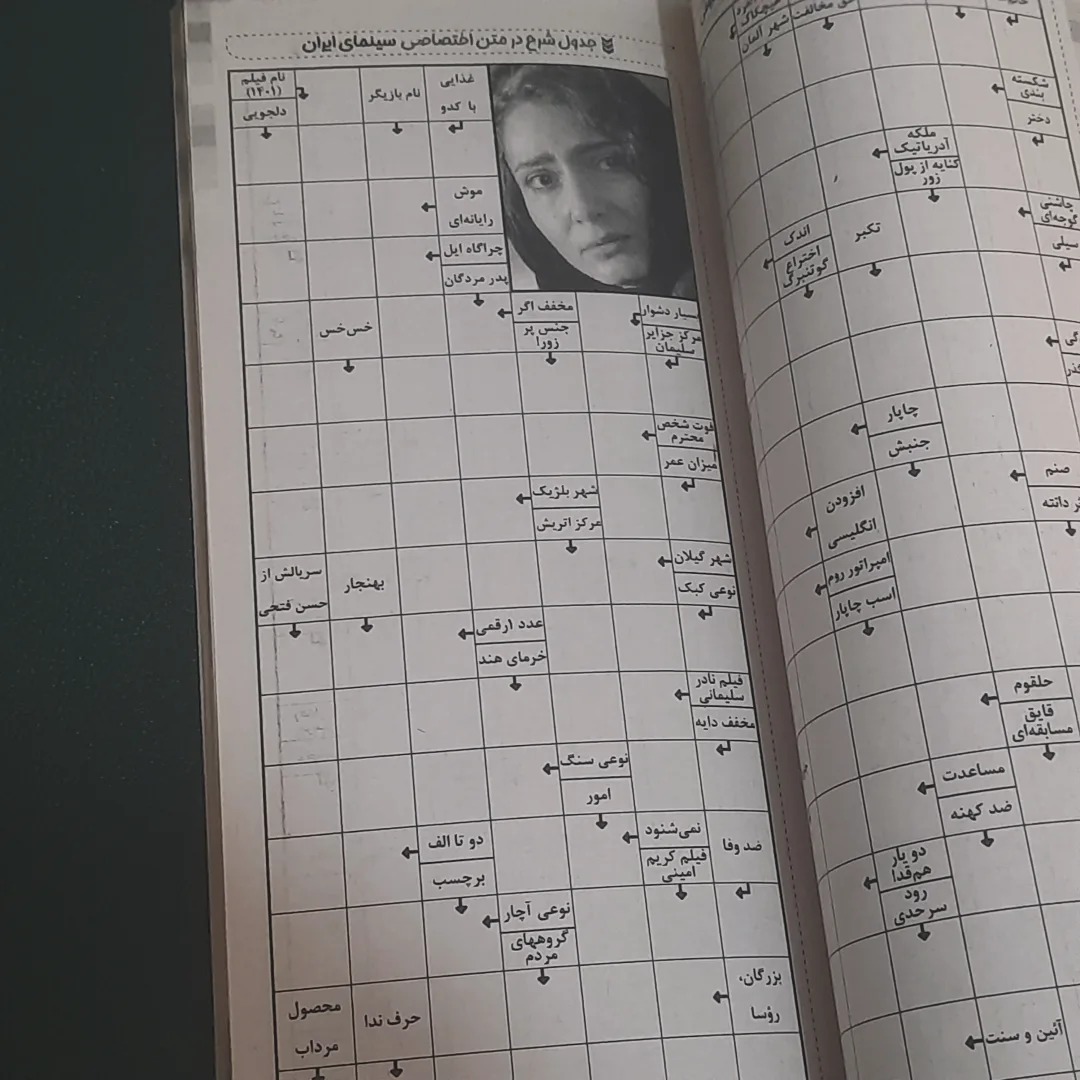 جدول شرح در متن اختصاصی سینمای ایران
غذایی
با کدو
نام بازیگر
نام فیلم
(۱۴۰۱)
دلجویی
موش
رایانه‌ای
چراگاه ایل
پدر مردگان
بسیار دشوار
مرکز جزایر
سلیمان
مخفف اگر
جنس پر
زور!
خس‌خس
فوت شخص
محترم
میزان عمر
شهر بلژیک
مرکز اتریش
شهر گیلان
نوعی کیک
بهنجار
سریالش از
حسن فتحی
عدد ۱رقمی
خرمای هند
فیلم نادر
سلیمانی
مخفف دایه
نوعی سنگ
امور
ضد وفا
نمی‌شنود
فیلم کریم
امینی
دو تا الف
برچسب
نوعی آچار
گروههای
مردم
بزرگان،
رؤسا
حرف ندا
محصول
مرداب
مخالفت
شهر آلمان
شکسته
بندی
دختر
ملکه
آدریاتیک
کنایه از پول
زور
چاشنی
گوجه‌ای
سیلی
تکبر
اندک
اختراع
گوتنبرگ
چاپار
جنبش
صنم
افزودن
انگلیسی
امپراتور روم
اسب چاپار
حلقوم
قایق
مسابقه‌ای
مساعدت
ضد کهنه
دو یار
هم‌قد!
رود
سرحدی
آئین و سنت